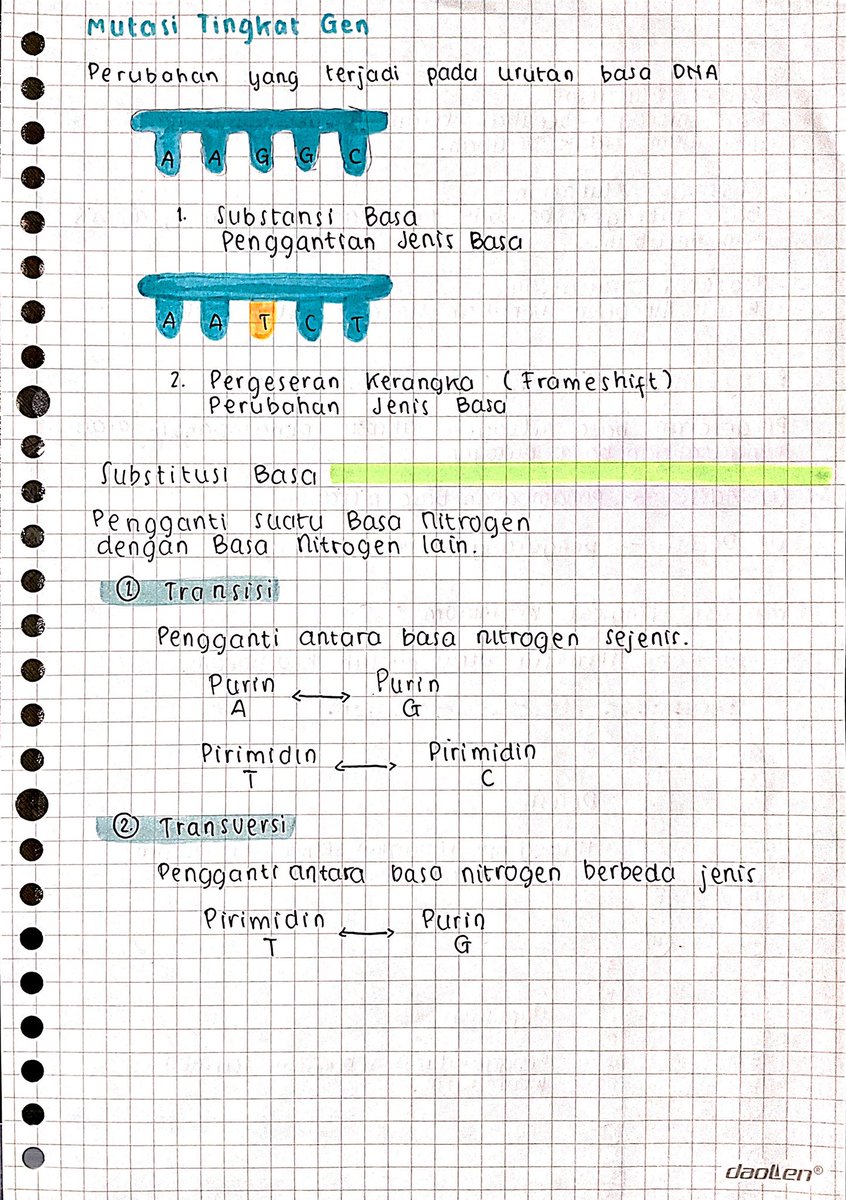 Mutasi Tingkat Gen
Perubahan yang terjadi pada urutan basa DNA
A A G G C
1. Substansi Basa
Penggantian Jenis Basa
A A T C T
2. Pergeseran Kerangka (Frameshift)
Perubahan Jenis Basa
Substitusi Basa
Pengganti suatu Basa Nitrogen
dengan Basa Nitrogen lain.
① Transisi
Pengganti antara basa nitrogen sejenis.
Purin ⟷ Purin
A G
Pirimidin ⟷ Pirimidin
T C
② Transversi
Pengganti antara basa nitrogen berbeda jenis
Pirimidin ⟷ Purin
T G
daollen®